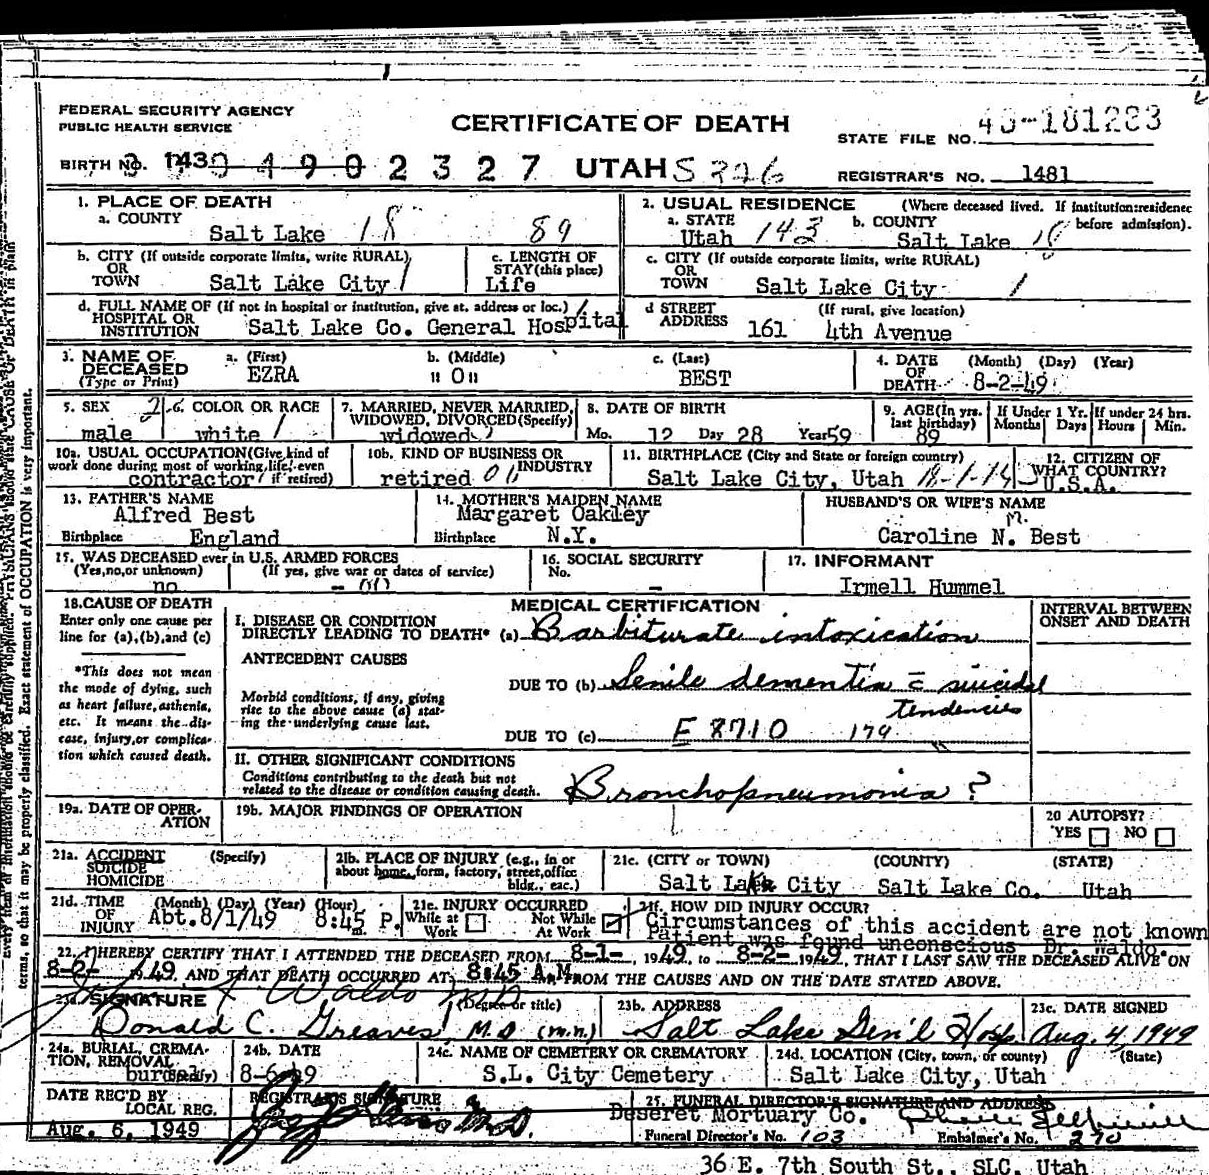 FEDERAL SECURITY AGENCY
PUBLIC HEALTH SERVICE
CERTIFICATE OF DEATH
STATE FILE NO.
BIRTH NO. 143 0 4 9 0 2 3 2 7 UTAH S 326
REGISTRAR'S NO. 1481
1. PLACE OF DEATH
a. COUNTY
Salt Lake 18 89
2. USUAL RESIDENCE (Where deceased lived. If institution:residence before admission).
a. STATE
Utah 143
b. COUNTY
Salt Lake 18
b. CITY (If outside corporate limits, write RURAL)
OR
TOWN Salt Lake City 1
c. LENGTH OF
STAY(this place)
Life
c. CITY (If outside corporate limits, write RURAL)
OR
TOWN Salt Lake City 1
d. FULL NAME OF (If not in hospital or institution, give st. address or loc.)
HOSPITAL OR
INSTITUTION Salt Lake Co. General Hospital
d STREET (If rural, give location)
ADDRESS 161 4th Avenue
3. NAME OF
DECEASED
(Type or Print)
a. (First)
EZRA
b. (Middle)
"O"
c. (Last)
BEST
4. DATE (Month) (Day) (Year)
OF
DEATH 8-2-49
5. SEX
male
6. COLOR OR RACE
white 1
7. MARRIED, NEVER MARRIED,
WIDOWED, DIVORCED(Specify)
widowed
8. DATE OF BIRTH
Mo. 12 Day 28 Year 59
9. AGE(In yrs.
last birthday)
89
If Under 1 Yr.
Months Days
If under 24 hrs.
Hours Min.
10a. USUAL OCCUPATION(Give kind of
work done during most of working life, even
if retired)
contractor
10b. KIND OF BUSINESS OR
INDUSTRY
retired
11. BIRTHPLACE (City and State or foreign country)
Salt Lake City, Utah
12. CITIZEN OF
WHAT COUNTRY?
U.S.A.
13. FATHER'S NAME
Alfred Best
Birthplace England
14. MOTHER'S MAIDEN NAME
Margaret Oakley
Birthplace N.Y.
HUSBAND'S OR WIFE'S NAME
M.
Caroline N. Best
15. WAS DECEASED ever in U.S. ARMED FORCES
(Yes,no,or unknown) (If yes, give war or dates of service)
no -
16. SOCIAL SECURITY
No. -
17. INFORMANT
Irmell Hummel
18. CAUSE OF DEATH
Enter only one cause per
line for (a),(b),and (c)
*This does not mean
the mode of dying, such
as heart failure,asthenia,
etc. It means the dis-
ease, injury,or complica-
tion which caused death.
MEDICAL CERTIFICATION
INTERVAL BETWEEN
ONSET AND DEATH
I. DISEASE OR CONDITION
DIRECTLY LEADING TO DEATH* (a) Barbiturate intoxication
ANTECEDENT CAUSES
DUE TO (b) Senile dementia c̄ suicidal
tendencies
Morbid conditions, if any, giving
rise to the above cause (a) stat-
ing the underlying cause last.
DUE TO (c) E 8710 179
II. OTHER SIGNIFICANT CONDITIONS
Conditions contributing to the death but not
related to the disease or condition causing death.
Bronchopneumonia ?
19a. DATE OF OPER-
ATION
19b. MAJOR FINDINGS OF OPERATION
20 AUTOPSY?
YES NO
21a. ACCIDENT (Specify)
SUICIDE
HOMICIDE
21b. PLACE OF INJURY (e.g., in or
about home, farm, factory, street,office
bldg., eac.)
21c. (CITY or TOWN) (COUNTY) (STATE)
Salt Lake City Salt Lake Co. Utah
21d. TIME (Month) (Day) (Year) (Hour)
OF
INJURY Abt.8/1/49 8:45 P. m.
21e. INJURY OCCURRED
While at
Work
Not While
At Work
21f. HOW DID INJURY OCCUR?
Circumstances of this accident are not known
Patient was found unconscious Dr. Waldo.
22. I HEREBY CERTIFY THAT I ATTENDED THE DECEASED FROM 8-1- 1949 to 8-2- 1949, THAT I LAST SAW THE DECEASED ALIVE ON
8-2- 1949 AND THAT DEATH OCCURRED AT 8:45 A.M. FROM THE CAUSES AND ON THE DATE STATED ABOVE.
Waldo MD
23a. SIGNATURE (Degree or title)
Donald C. Greaves, M.D. (m.n.)
23b. ADDRESS
Salt Lake Gen'l Hosp.
23c. DATE SIGNED
Aug. 4, 1949
24a. BURIAL, CREMA-
TION, REMOVAL
(Specify)
burial
24b. DATE
8-6-49
24c. NAME OF CEMETERY OR CREMATORY
S.L. City Cemetery
24d. LOCATION (City, town, or county) (State)
Salt Lake City, Utah
DATE REC'D BY
LOCAL REG.
Aug. 6, 1949
REGISTRAR'S SIGNATURE
M.D.
25. FUNERAL DIRECTOR'S SIGNATURE AND ADDRESS
Deseret Mortuary Co.
Funeral Director's No. 103 Embalmer's No. 270
36 E. 7th South St., SLC, Utah